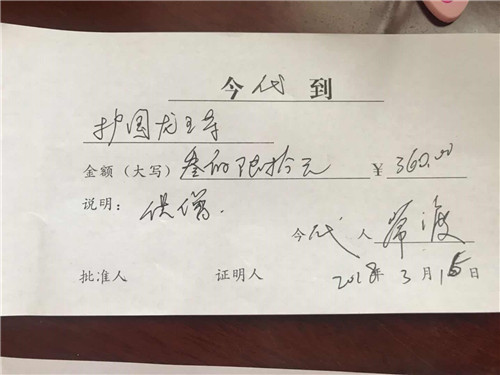 今代到
护国龙王寺
金额（大写）叁佰陆拾元 ￥ 360.00
说明：供僧.
今代人
2018年 3月15日
批准人 证明人